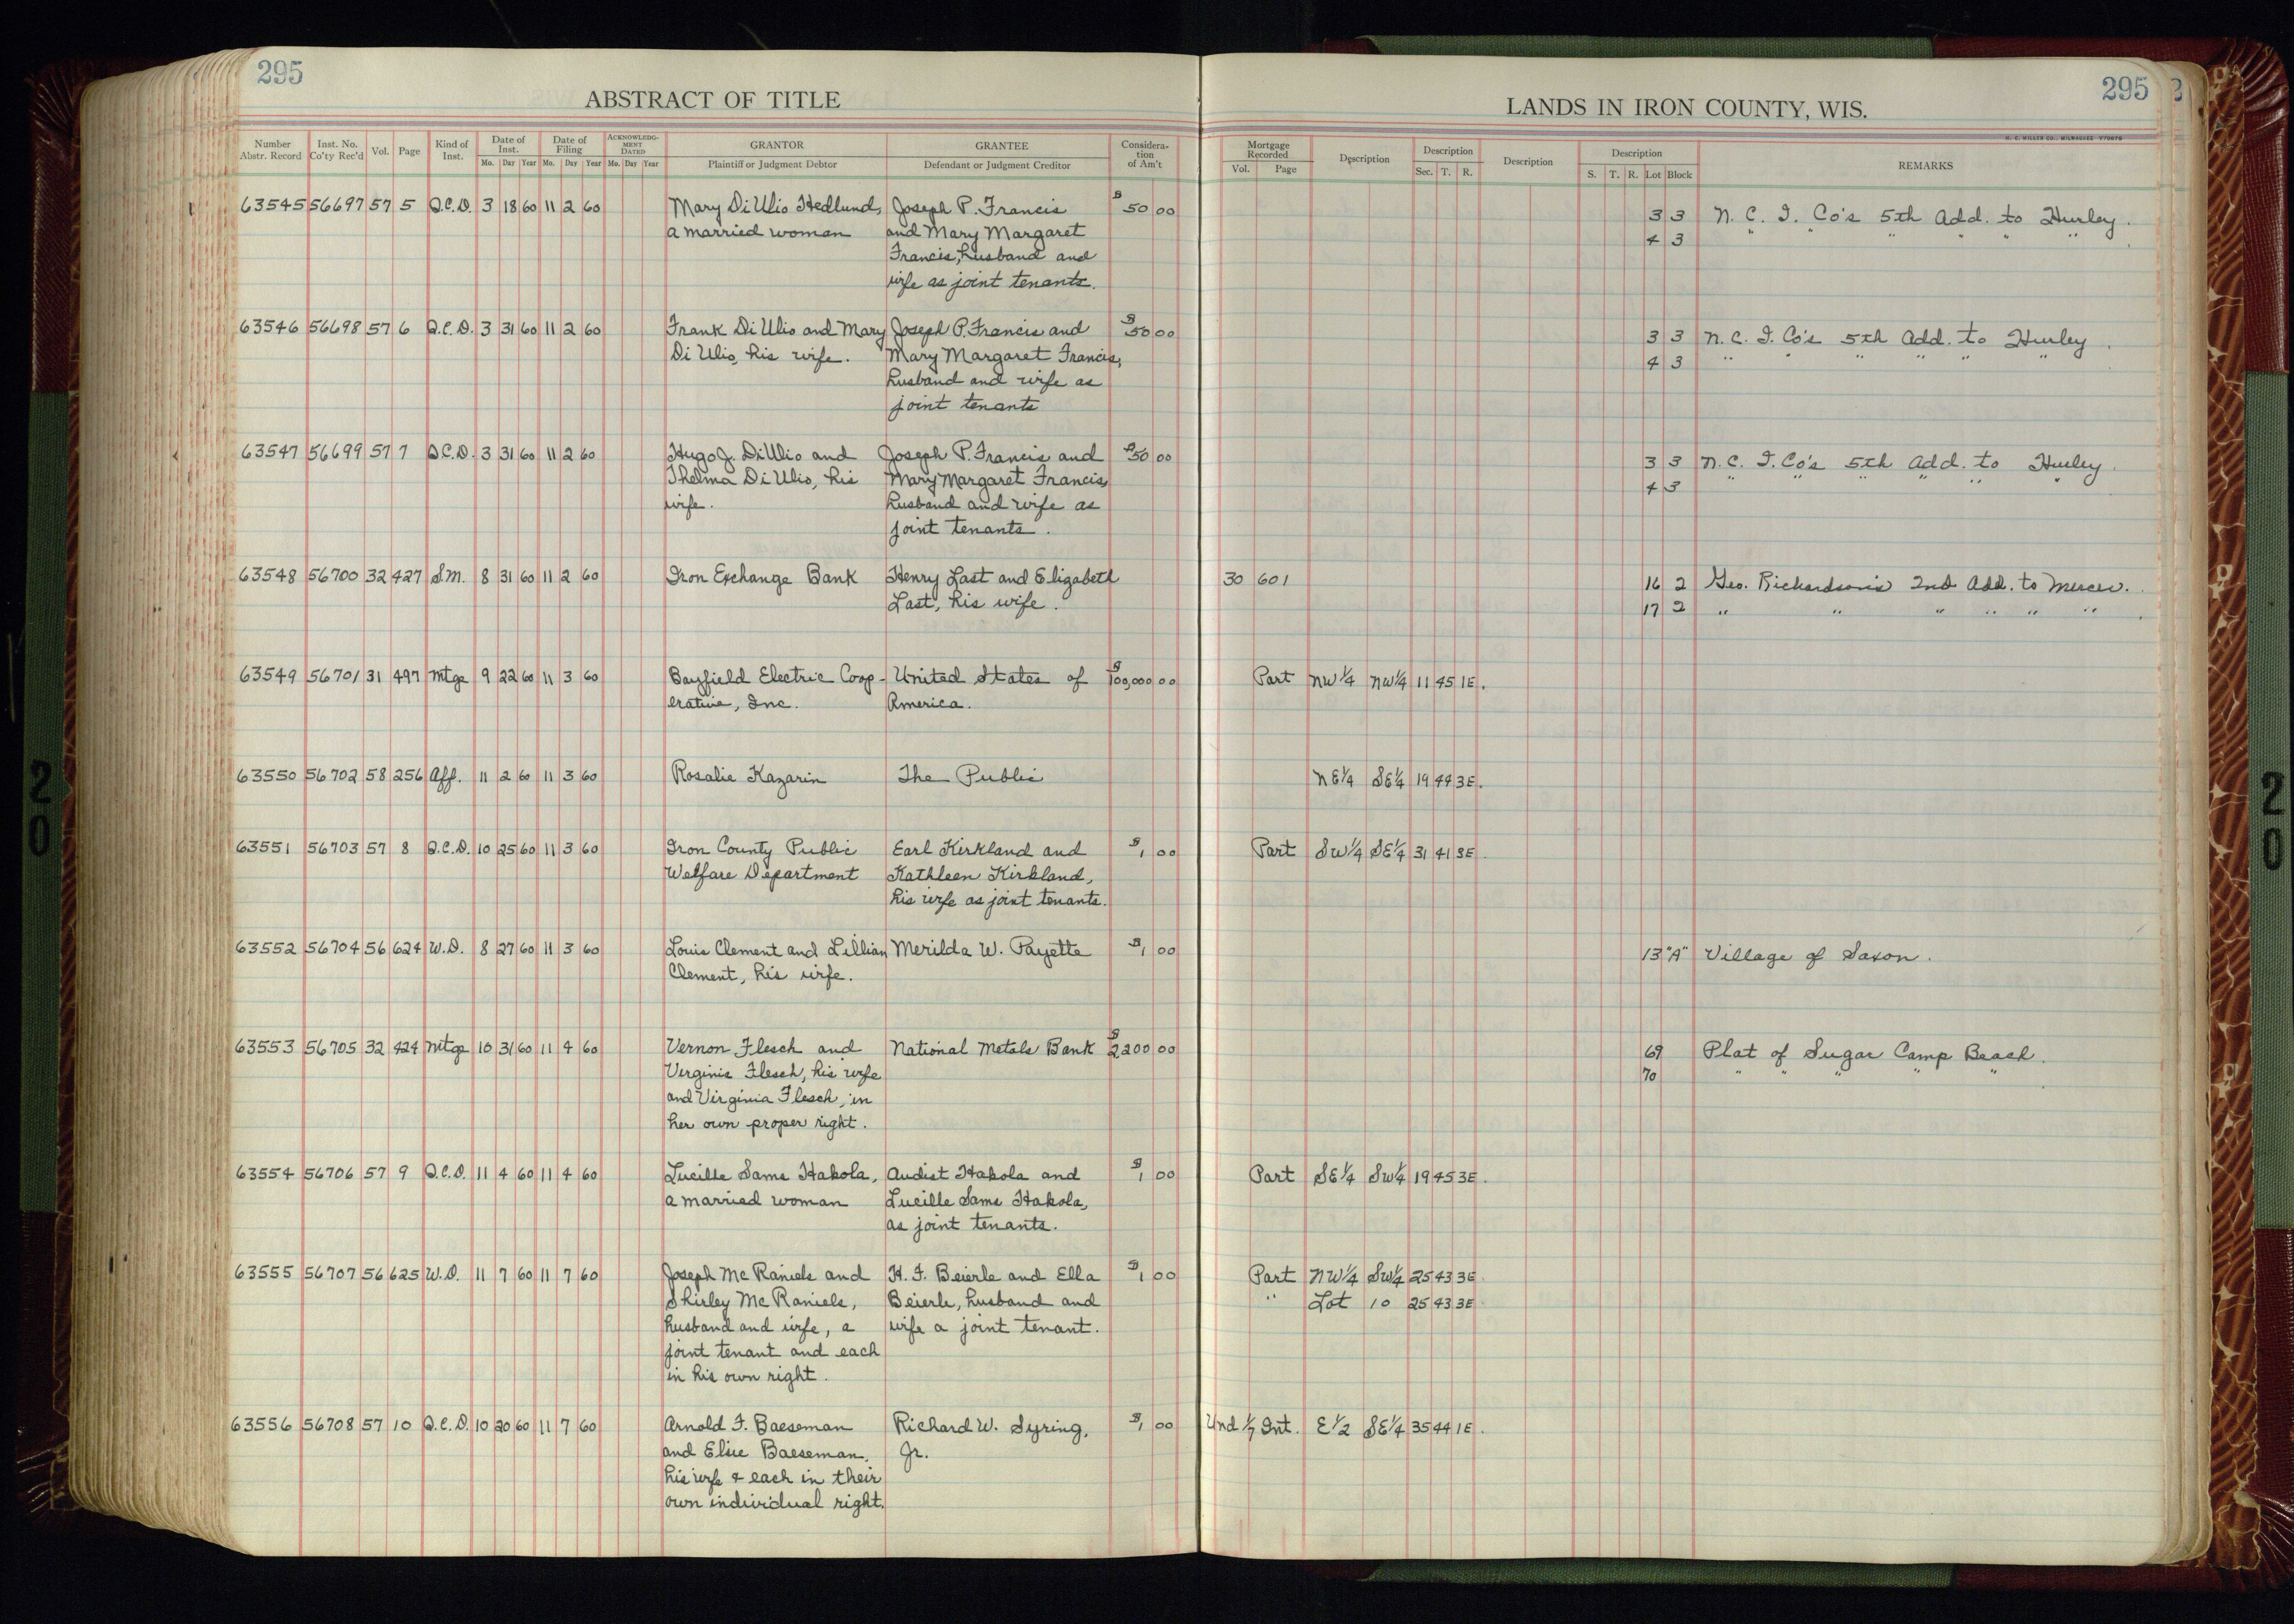 295
ABSTRACT OF TITLE
Number Abstr. Record Inst. No. Co'ty Rec'd Vol. Page Kind of Inst. Date of Inst. Mo. Day Year Date of Filing Mo. Day Year ACKNOWLEDGMENT DATED Mo. Day Year GRANTOR Plaintiff or Judgment Debtor GRANTEE Defendant or Judgment Creditor Consideration of Am't
63545 56697 57 5 Q.C.D. 3 18 60 11 2 60 Mary Di Ulio Hedlund, Joseph P. Francis $50 00
a married woman and Mary Margaret
Francis, husband and
wife as joint tenants.
63546 56698 57 6 Q.C.D. 3 31 60 11 2 60 Frank Di Ulio and Mary Joseph P. Francis and $50 00
Di Ulio, his wife. Mary Margaret Francis,
husband and wife as
joint tenants
63547 56699 57 7 Q.C.D. 3 31 60 11 2 60 Hugo J. Di Ulio and Joseph P. Francis and $50 00
Thelma Di Ulio, his Mary Margaret Francis,
wife. husband and wife as
joint tenants.
63548 56700 32 427 S.M. 8 31 60 11 2 60 Iron Exchange Bank Henry Last and Elizabeth
Last, his wife.
63549 56701 31 497 Mtge 9 22 60 11 3 60 Bayfield Electric Coop- United States of $100,000 00
erative, Inc. America.
63550 56702 58 256 Aff. 11 2 60 11 3 60 Rosalie Kazarin The Public
63551 56703 57 8 Q.C.D. 10 25 60 11 3 60 Iron County Public Earl Kirkland and $1 00
Welfare Department Kathleen Kirkland,
his wife as joint tenants.
63552 56704 56 624 W.D. 8 27 60 11 3 60 Louis Clement and Lillian Merilda W. Payette $1 00
Clement, his wife.
63553 56705 32 424 Mtge 10 31 60 11 4 60 Vernon Flesch and National Metals Bank $2,200 00
Virginia Flesch, his wife
and Virginia Flesch, in
her own proper right.
63554 56706 57 9 Q.C.D. 11 4 60 11 4 60 Lucille Sams Hakola, Audist Hakola and $1 00
a married woman Lucille Sams Hakola,
as joint tenants.
63555 56707 56 625 W.D. 11 7 60 11 7 60 Joseph Mc Raniels and H. F. Beierle and Ella $1 00
Shirley Mc Raniels, Beierle, husband and
husband and wife, a wife a joint tenant.
joint tenant and each
in his own right.
63556 56708 57 10 Q.C.D. 10 20 60 11 7 60 Arnold F. Baeseman Richard W. Syring, $1 00
and Elsie Baeseman, Jr.
his wife & each in their
own individual right.
295
LANDS IN IRON COUNTY, WIS.
H. C. MILLER CO., MILWAUKEE
Mortgage Recorded Vol. Page Description Description Sec. T. R. Description Description S. T. R. Lot Block REMARKS
3 3 N. C. I. Co's 5th Add. to Hurley.
4 3 " " " " " "
3 3 N. C. I. Co's 5th Add. to Hurley.
4 3 " " " " " "
3 3 N. C. I. Co's 5th Add. to Hurley.
4 3 " " " " " "
30 601 16 2 Geo. Richardson's 2nd Add. to Mercer.
17 2 " " " " " "
Part NW¼ NW¼ 11 45 1E.
NE¼ SE¼ 19 44 3E.
Part SW¼ SE¼ 31 41 3E.
13 "A" Village of Saxon.
69 Plat of Sugar Camp Beach.
70 " " " " "
Part SE¼ SW¼ 19 45 3E.
Part NW¼ SW¼ 25 43 3E.
" Lot 10 25 43 3E.
Und 1/7 Int. E½ SE¼ 35 44 1E.
20
20